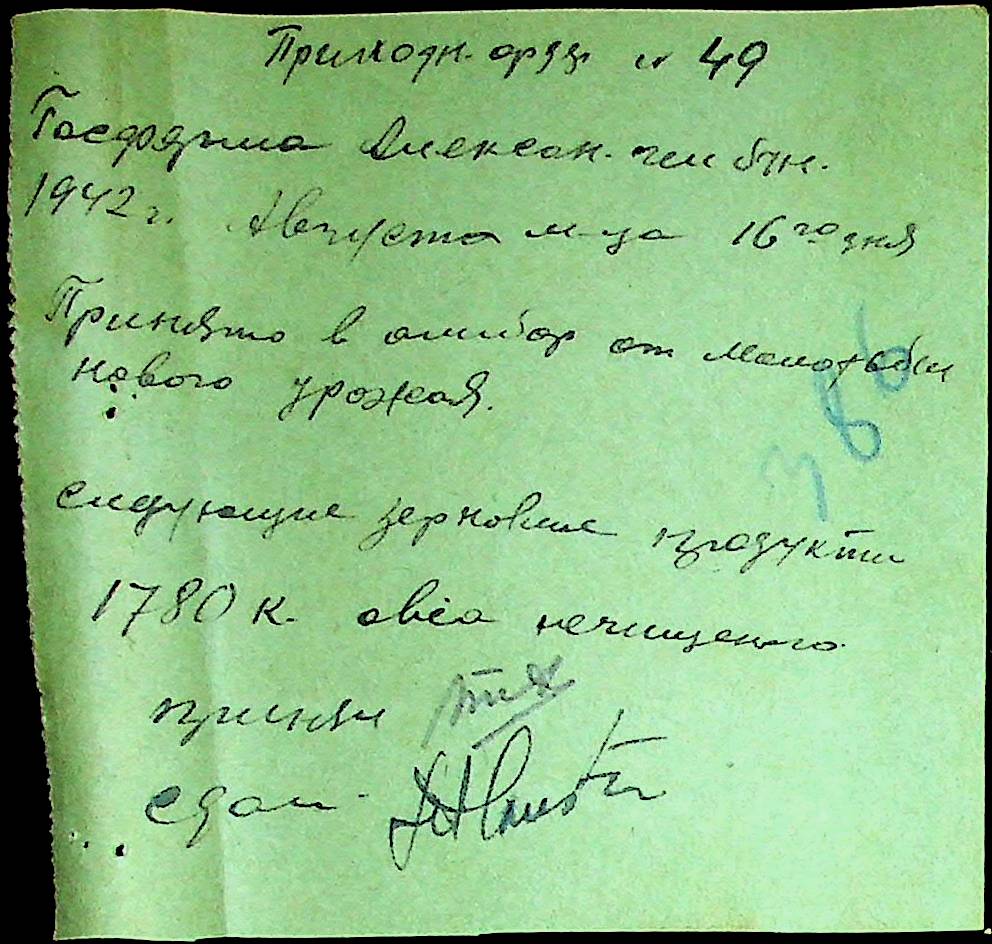 Приходн. ордер № 49
Госферма Алексан.
1942 г. Августа м-ца 16го дня
Принято в амбар от молотьбы
нового урожая.
386
следующие зерновые продукти
1780 к. овса нечищеного
принял
сдал